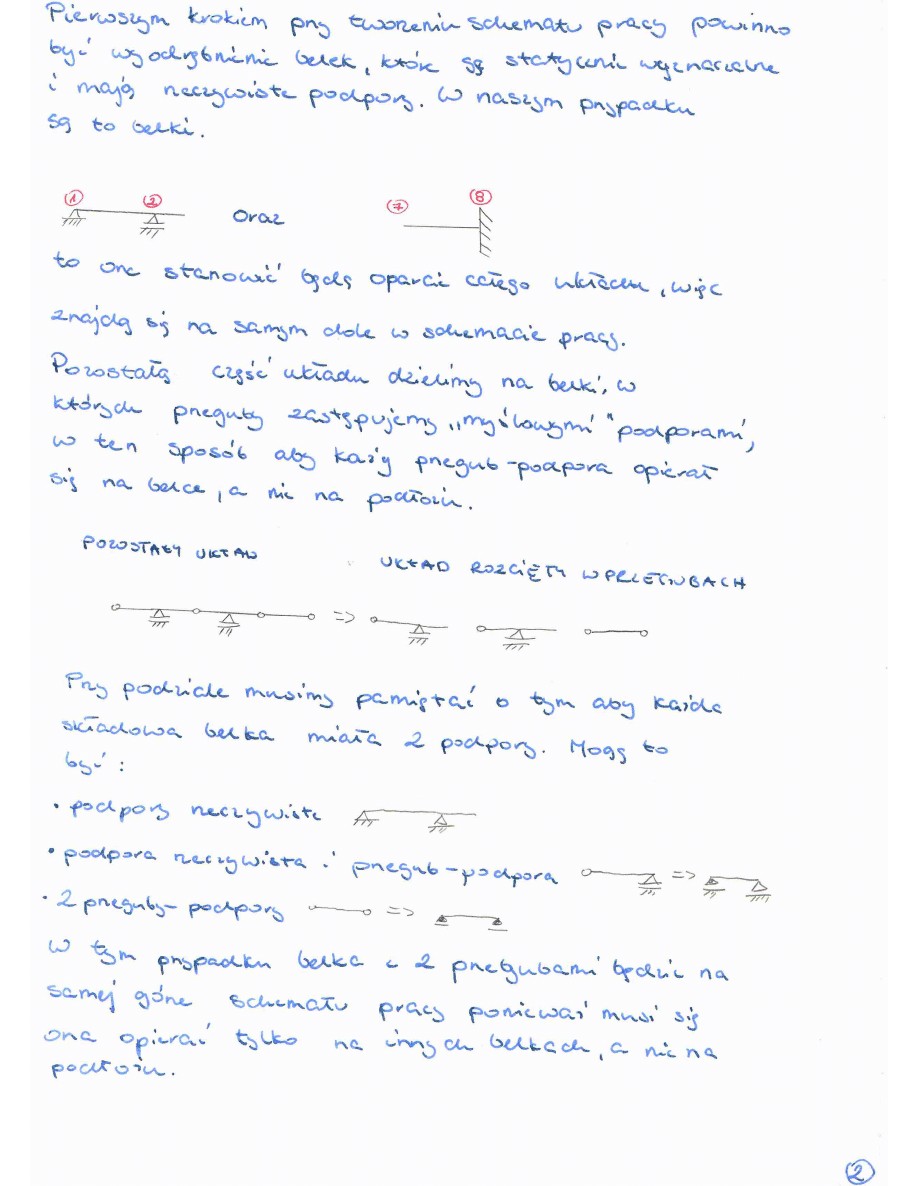 Pierwszym krokiem przy tworzeniu schematu pracy powinno
być wyodrębnienie belek, które są statycznie wyznaczalne
i mają rzeczywiste podpory. W naszym przypadku
są to belki.
1 2 oraz 7 8
to one stanowić będą oparcie całego układu, więc
znajdą się na samym dole w schemacie pracy.
Pozostałą część układu dzielimy na belki, w
których przeguby zastępujemy „myślowymi" podporami,
w ten sposób aby każdy przegub-podpora opierał
się na belce, a nie na podłożu.
POZOSTAŁY UKŁAD UKŁAD ROZCIĘTY W PRZEGUBACH
=>
Przy podziale musimy pamiętać o tym aby każda
składowa belka miała 2 podpory. Mogą to
być:
• podpory rzeczywiste
• podpora rzeczywista i przegub-podpora =>
• 2 przeguby-podpory =>
W tym przypadku belka z 2 przegubami będzie na
samej górze schematu pracy ponieważ musi się
ona opierać tylko na innych belkach, a nie na
podłożu.
2